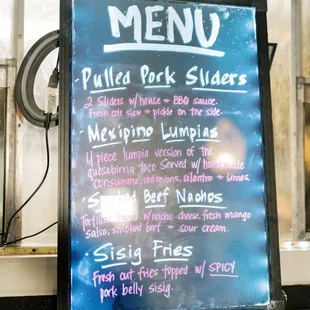 MENU
· Pulled Pork Sliders
2 Sliders w/house BBQ sauce.
Fresh cole slaw + pickle on the side
· Mexipino Lumpias
4 piece lumpia version of the
quesabirria taco served w/
consumme, red onions, cilantro + limes
Beef Nachos
w/nacho cheese, fresh mango
salsa, smoked beef + sour cream.
· Sisig Fries
Fresh cut fries topped w/ SPICY
pork belly sisig.